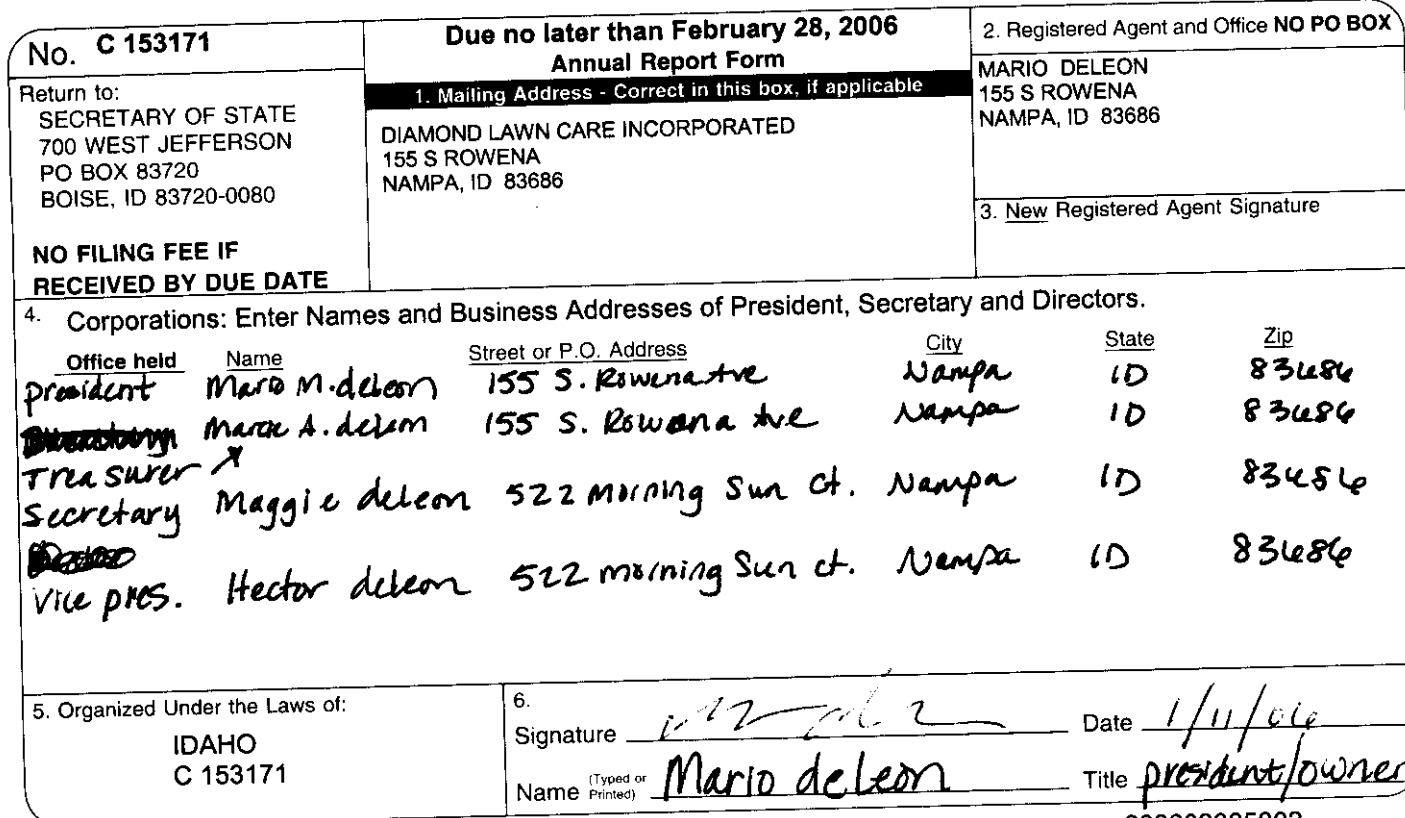 No. C 153171
Return to:
SECRETARY OF STATE
700 WEST JEFFERSON
PO BOX 83720
BOISE, ID 83720-0080
NO FILING FEE IF
RECEIVED BY DUE DATE
Due no later than February 28, 2006
Annual Report Form
1. Mailing Address - Correct in this box, if applicable
DIAMOND LAWN CARE INCORPORATED
155 S ROWENA
NAMPA, ID 83686
2. Registered Agent and Office NO PO BOX
MARIO DELEON
155 S ROWENA
NAMPA, ID 83686
3. New Registered Agent Signature
4. Corporations: Enter Names and Business Addresses of President, Secretary and Directors.
Office held Name Street or P.O. Address City State Zip
president Mario M. deLeon 155 S. Rowena Ave Nampa ID 83686
A. deleon 155 S. Rowena Ave Nampa ID 83686
Treasurer
Secretary Maggie deleon 522 Morning Sun Ct. Nampa ID 83686
Vice pres. Hector deleon 522 morning Sun ct. Nampa ID 83686
5. Organized Under the Laws of:
IDAHO
C 153171
6.
Signature Date 1/11/06
Name (Typed or Printed) Mario deLeon Title president/owner